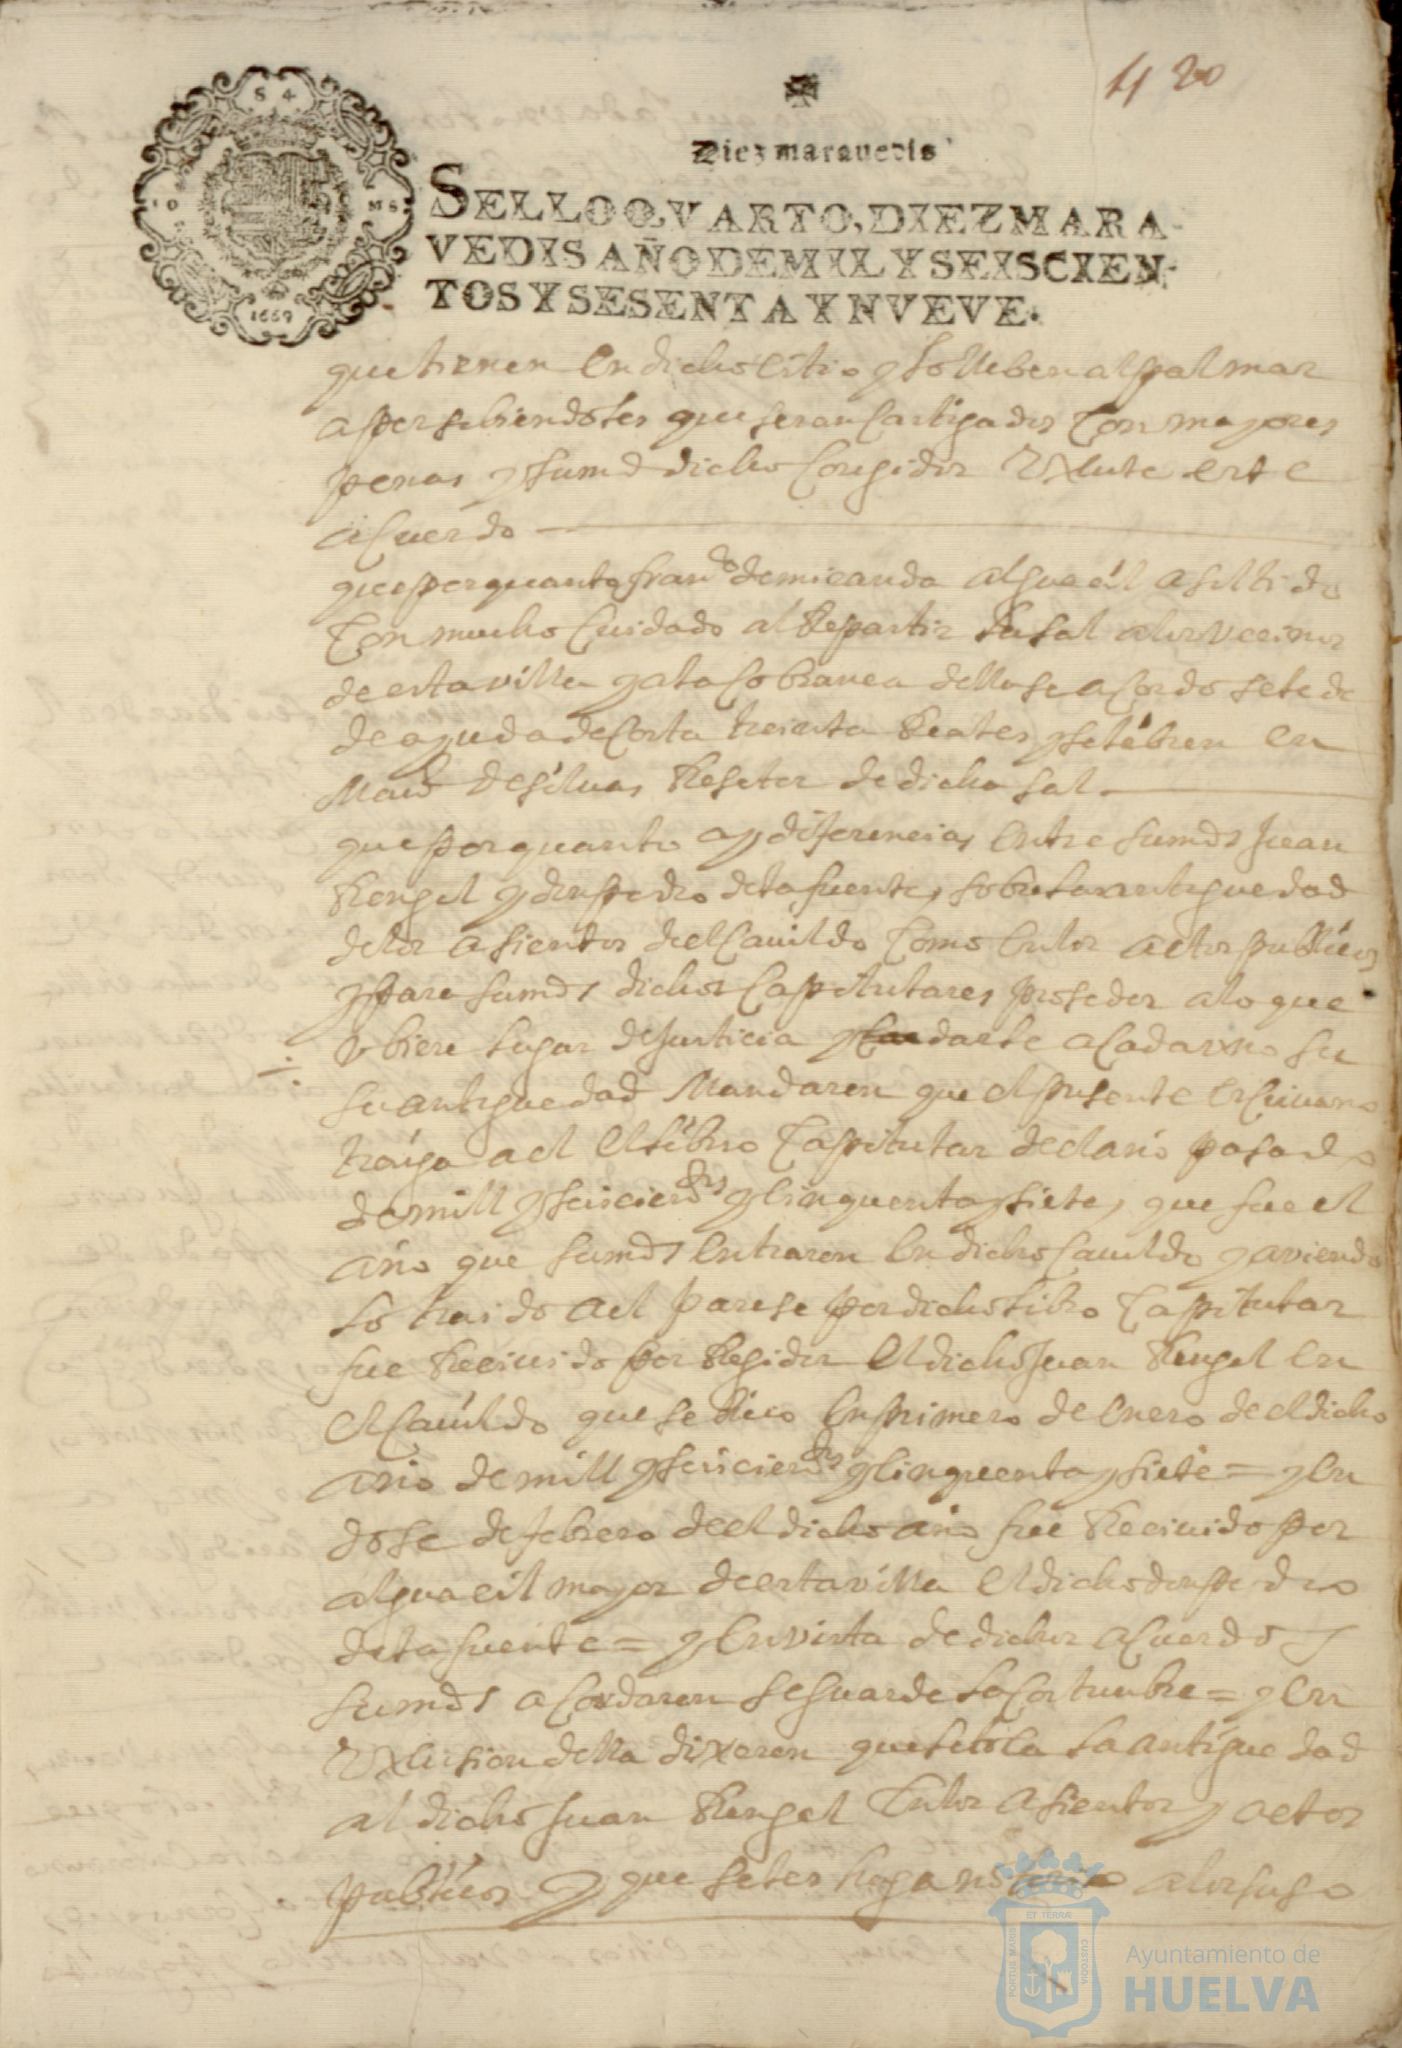 420
Diez maravedis
SELLO QVARTO, DIEZ MARA-
VEDIS AÑO DE MIL Y SEISCIEN-
TOS Y SESENTA Y NVEVE.
S 4
1669
que tienen en dicho citio y lo lleben al palmar
apersebiendoles que seran castigados con mayores
penas y su md dicho Coregidor exsecute este
acuerdo
que por quanto Franco de miranda alguacil a sistido
con mucho cuidado al Repartir la sal a los vecinos
de esta villa y a la cobranca della se acordo se le de
de ayuda de costa treinta Reales y se libren en
de silvas Resetor de dicha sal
que por quanto ay diferencias entre sus mds Juan
Rengel y don pedro de la fuente, sobre la antiguedad
de los asientos del Cavildo como en los actos publicos
y para sus mds dichos Capitulares proseder a lo que
ubiere lugar de justicia y darle a cada uno su
su antiguedad Mandaron que el presente escrivano
trayga a el el libro Capitular del año pasado
de mill y seiscientos y cinquenta y siete, que fue el
año que sus mds entraron en dicho Cavildo y aviendo
lo traido a el parese por dicho libro Capitular
fue Recivido por Regidor el dicho Juan Rengel en
el Cavildo que se hico en primero de enero de el dicho
año de mill y seiscientos y cinquenta y siete = y en
dose de febrero de el dicho año fue Recivido por
alguacil mayor de esta villa el dicho don pedro
de la fuente = y en vista de dichos acuerdos
sus mds acordaron se guarde la costumbre = y en
della dixeron que se le da la antiguedad
al dicho Juan Rengel en los asientos y actos
publicos y que se les haga a los suso
PORTUS MARIS ET TERRÆ CUSTODIA
Ayuntamiento de
HUELVA